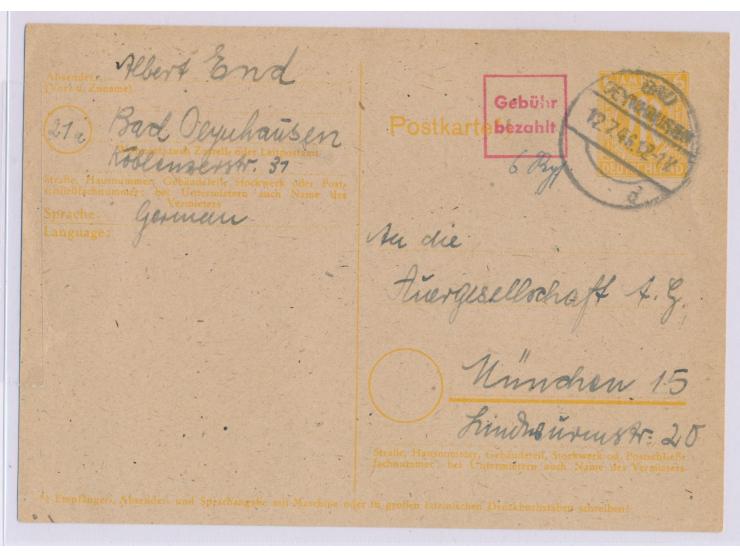 Absender:
(Vor- u. Zuname)
Albert End
21a
Bad Oeynhausen
Koblenzerstr. 31
Straße, Hausnummer, Gebäudeteile, Stockwerk oder Post-
schließfachnummer; bei Untermietern auch Name des
Vermieters
Sprache:
Language:
German
Postkarte
Gebühr
bezahlt
6 Rpf
BAD
OEYNHAUSEN
12.7.46.12-1
d
DEUTSCHLAND
An die
Auergesellschaft A.G.
München 15
Lindwurmstr. 20
Straße, Hausnummer, Gebäudeteil, Stockwerk od. Postschließ-
fachnummer; bei Untermietern auch Name des Vermieters
*) Empfänger-, Absender- und Sprachangabe mit Maschine oder in großen lateinischen Druckbuchstaben schreiben!